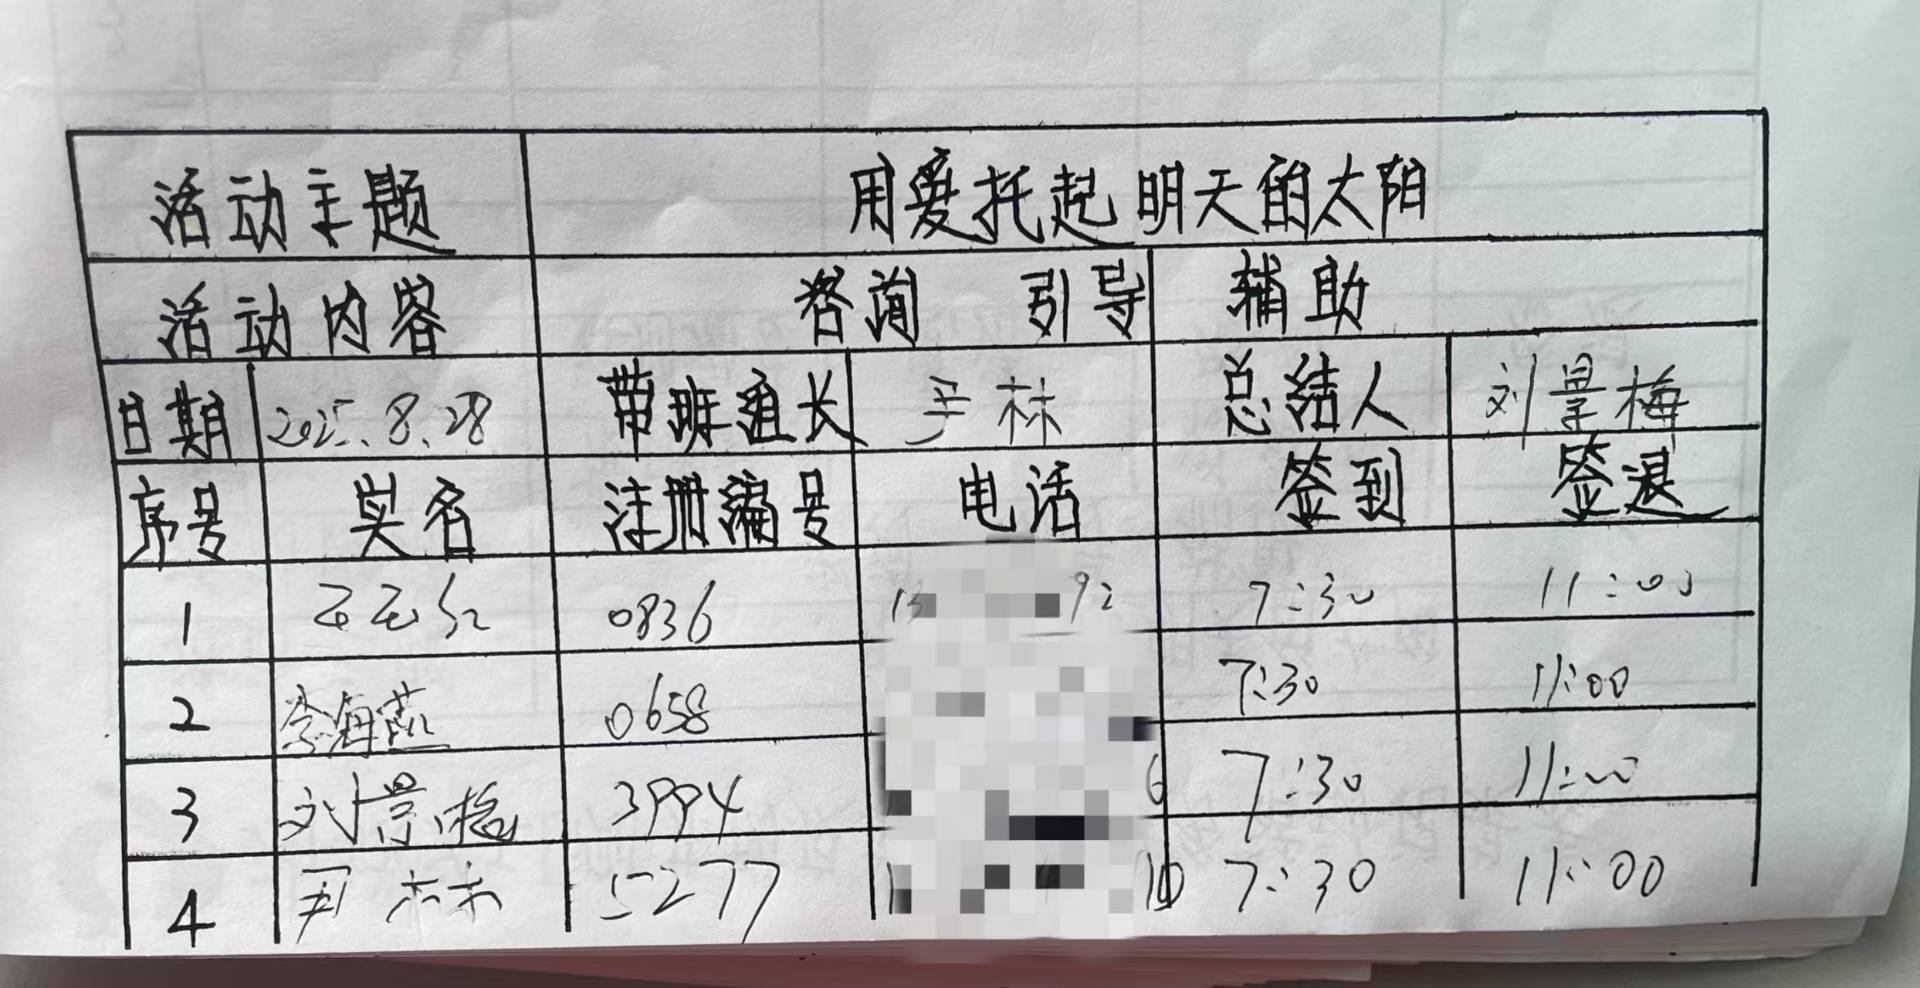 活动主题 用爱托起明天的太阳
活动内容 咨询 引导 辅助
日期 2025.8.28 带班组长 尹林 总结人 刘景梅
序号 实名 注册编号 电话 签到 签退
1 0836 13 92 7:30 11:00
2 李海燕 0658 7:30 11:00
3 刘景梅 3994 6 7:30 11:00
4 尹林 5277 1 10 7:30 11:00